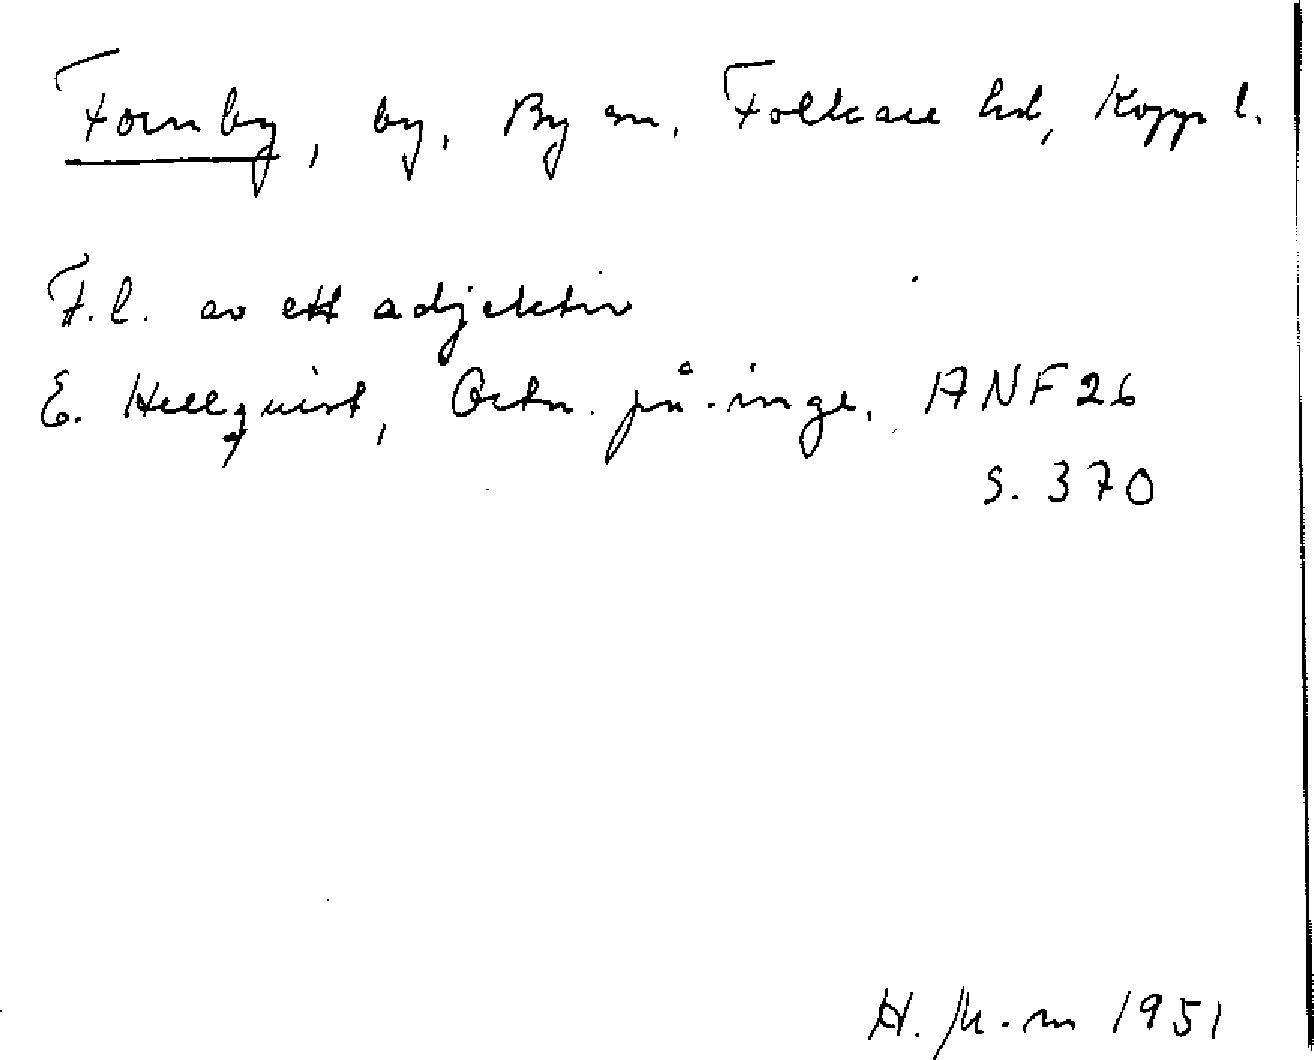 Fornby, by, By sn, Folkare hd, Kopp l.
F.l. av ett adjektiv
E. Hellquist, Ortn. på -inge, ANF 26
s. 370
1951